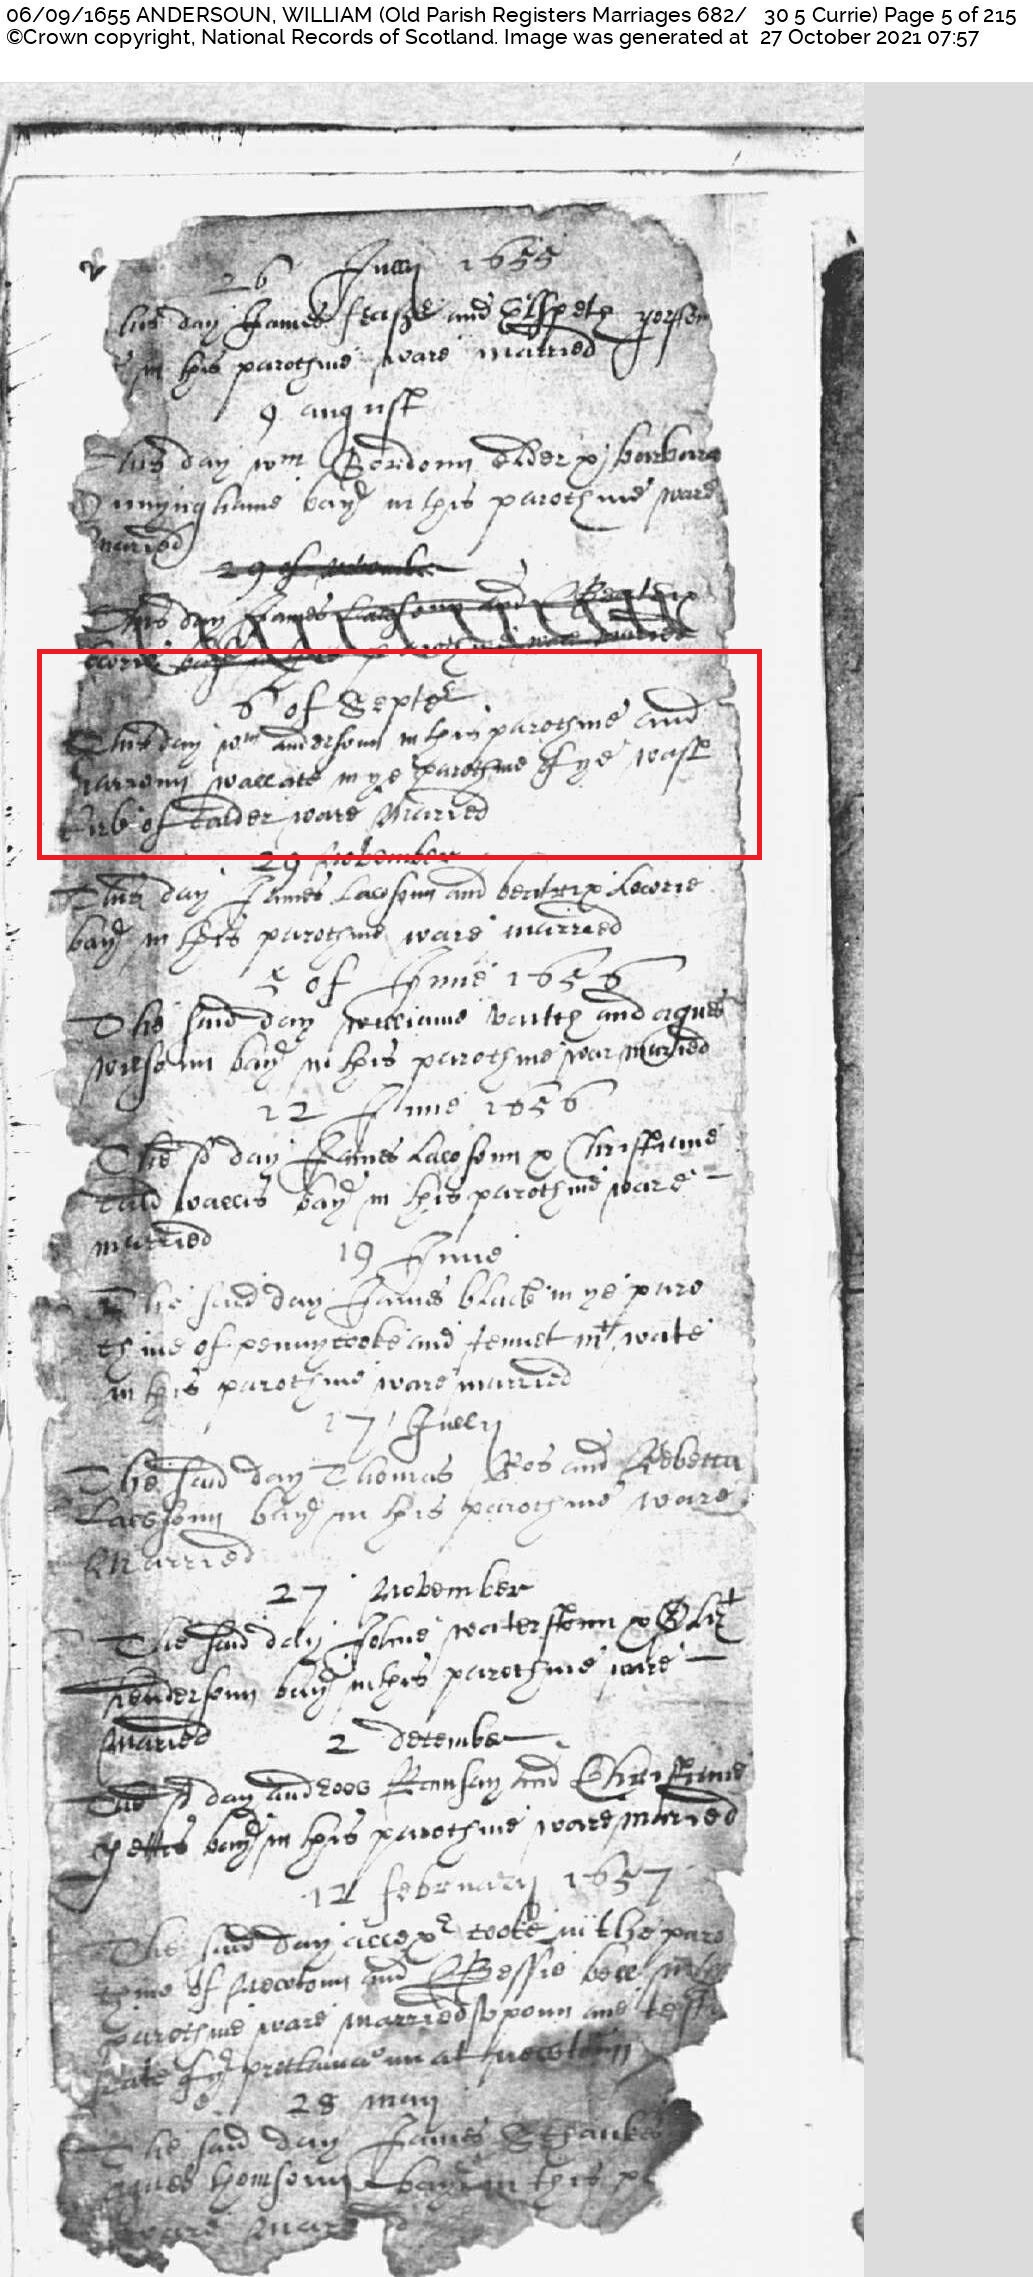 06/09/1655 ANDERSOUN, WILLIAM (Old Parish Registers Marriages 682/ 30 5 Currie) Page 5 of 215
©Crown copyright, National Records of Scotland. Image was generated at 27 October 2021 07:57
26 Jully 1655
this day James and Elspeth
in this parochine ware married
9 august
This day wm Gordoun elder & barbara
Cunynghame bayth in this parochine ware
maried
29 of November
This day James Lawsoun and Beatrix
bayth in this parochine ware maried
6 of Septer
This day wm andersoun in this parochine and
marioun wallace in ye parochine of ye wast
kirk of Calder ware Maried
29 November
This day James Lawsoun and beatrix Lowrie
bayth in this parochine ware married
5 of Junie 1656
The said day williame and agnes
wilsoun bayth in this parochine war maried
12 Junie 1656
The sd day James Lawsoun & Christiane
bayth in this parochine ware
married
19 Junie
The said day James black in ye paro
chine of pennycooke and Jennet
in this parochine ware married
17 Jully
The said day Thomas Ros and Rebecca
Lawsoun bayth in this parochine ware
Married
27 November
The said day Johne waterstoun &
hendersoun bayth in this parochine ware
Maried
2 december
The sd day androw Ramsay and Christiane
yettis bayth in this parochine ware maried
12 february 1657
The said day allexr cooke in the paro
chine of Newtoun and Bessie bell in this
parochine ware married upoun ane testifi
cate of ye proclamatioun at newtoun
28 may
The said day James Shankes
agnes thomsoun bayth in this
ware Maried